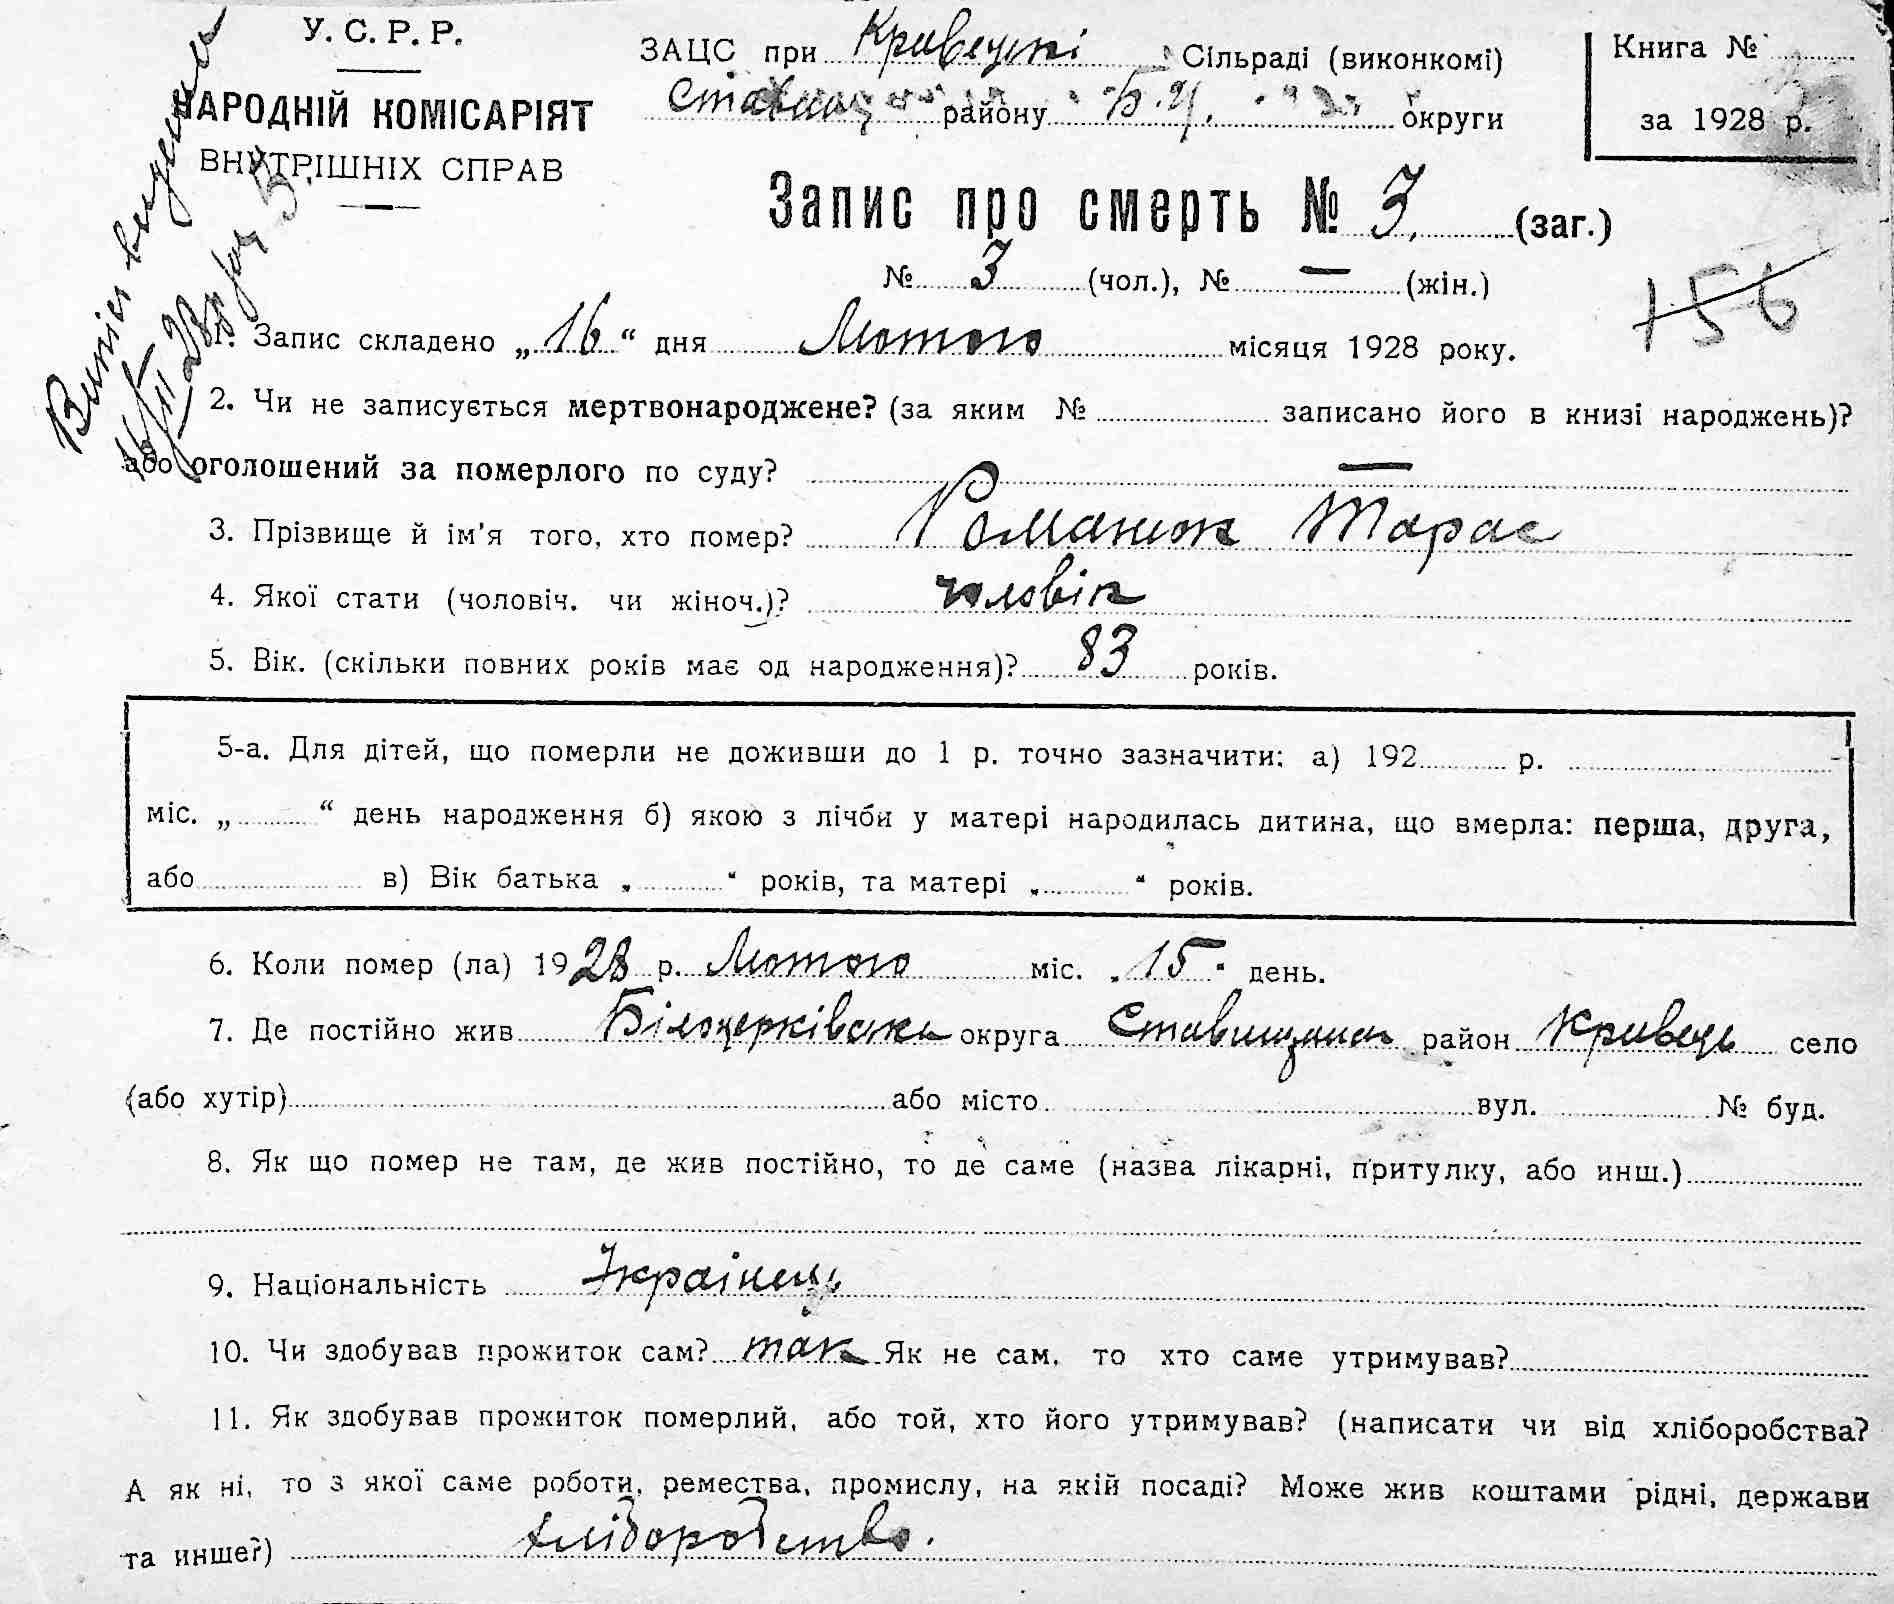 У. С. Р. Р.
НАРОДНІЙ КОМІСАРІЯТ
ВНУТРІШНІХ СПРАВ
ЗАЦС при Кривецькі Сільраді (виконкомі)
Ставищ району Б. Ц. округи
Книга №
за 1928 р.
Витяг видано
16/II 28 р.
Запис про смерть № 3. (заг.)
№ 3 (чол.), № — (жін.)
156
1. Запис складено „16“ дня Лютого місяця 1928 року.
2. Чи не записується мертвонароджене? (за яким № записано його в книзі народжень)?
або оголошений за померлого по суду? —
3. Прізвище й ім'я того, хто помер? Романюк Тарас
4. Якої стати (чоловіч. чи жіноч.)? чоловік
5. Вік. (скільки повних років має од народження)? 83 років.
5-а. Для дітей, що померли не доживши до 1 р. точно зазначити: а) 192 р.
міс. „ “ день народження б) якою з лічби у матері народилась дитина, що вмерла: перша, друга,
або в) Вік батька „ “ років, та матері „ “ років.
6. Коли помер (ла) 1928 р. Лютого міс. „15“ день.
7. Де постійно жив Білоцерківська округа Ставищанськ район Кривець село
(або хутір) або місто вул. № буд.
8. Як що помер не там, де жив постійно, то де саме (назва лікарні, притулку, або инш.)
9. Національність Українець
10. Чи здобував прожиток сам? так Як не сам, то хто саме утримував?
11. Як здобував прожиток померлий, або той, хто його утримував? (написати чи від хліборобства?
А як ні, то з якої саме роботи, ремества, промислу, на якій посаді? Може жив коштами рідні, держави
та инше?) хліборобство.